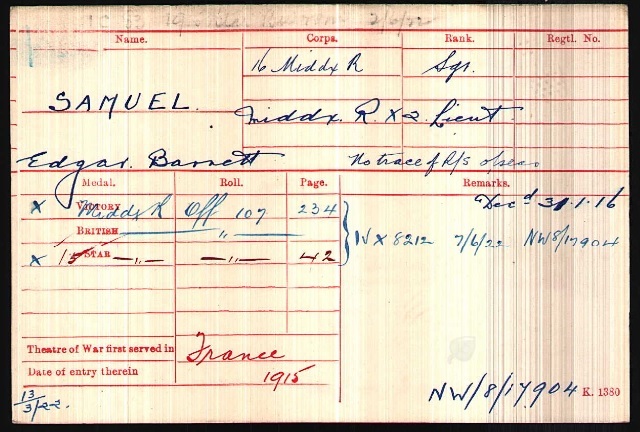 Name. Corps. Rank. Regtl. No.
16 Middx R Sgr.
SAMUEL. Middx. R. X 2. Lieut.
Edgar. Barnett No trace of R/S
Medal. Roll. Page. Remarks.
X VICTORY Middx R Off 107 234 Dec'd 31.1.16
BRITISH " IV X 8212 7/6/22 NW8/17904
X 15 STAR —„— —„— 42
Theatre of War first served in France
Date of entry therein 1915
13/3/22. NW/8/17904 K. 1380